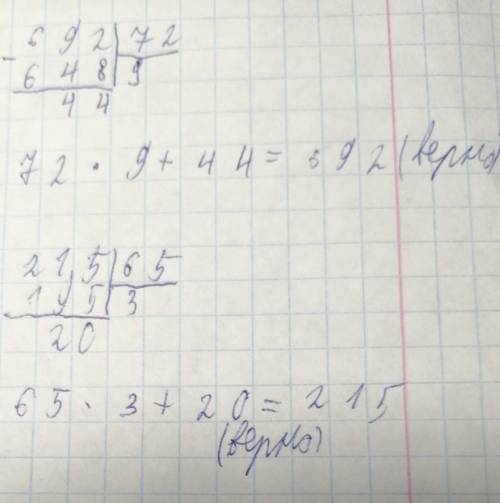 692|72
-648 9
44
72 · 9 + 44 = 692 (верно)
215|65
195 3
20
65 · 3 + 20 = 215
(верно)